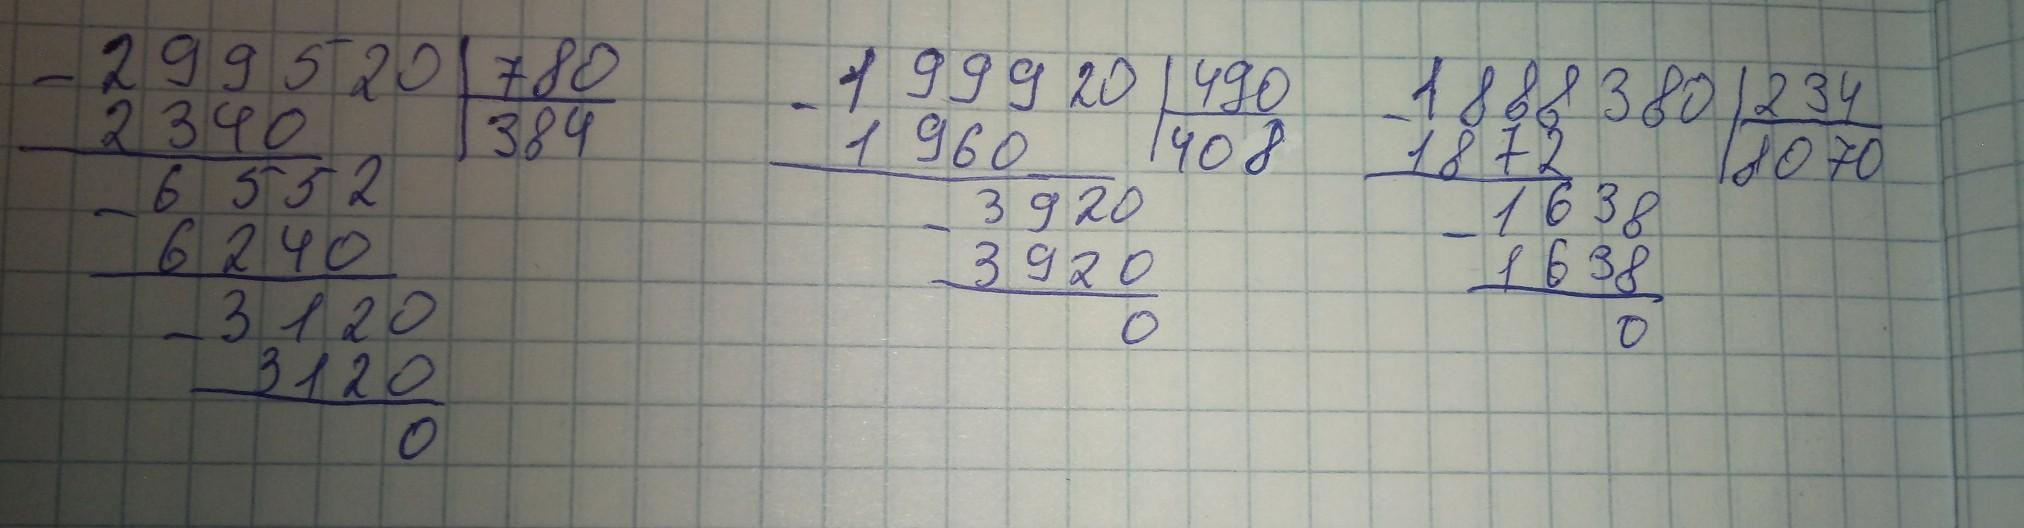 - 299520 | 780
2340 | 384
- 6552
6240
- 3120
3120
0
- 199920 | 490
1960 | 408
- 3920
3920
0
- 1888380 | 234
1872 | 8070
- 1638
1638
0